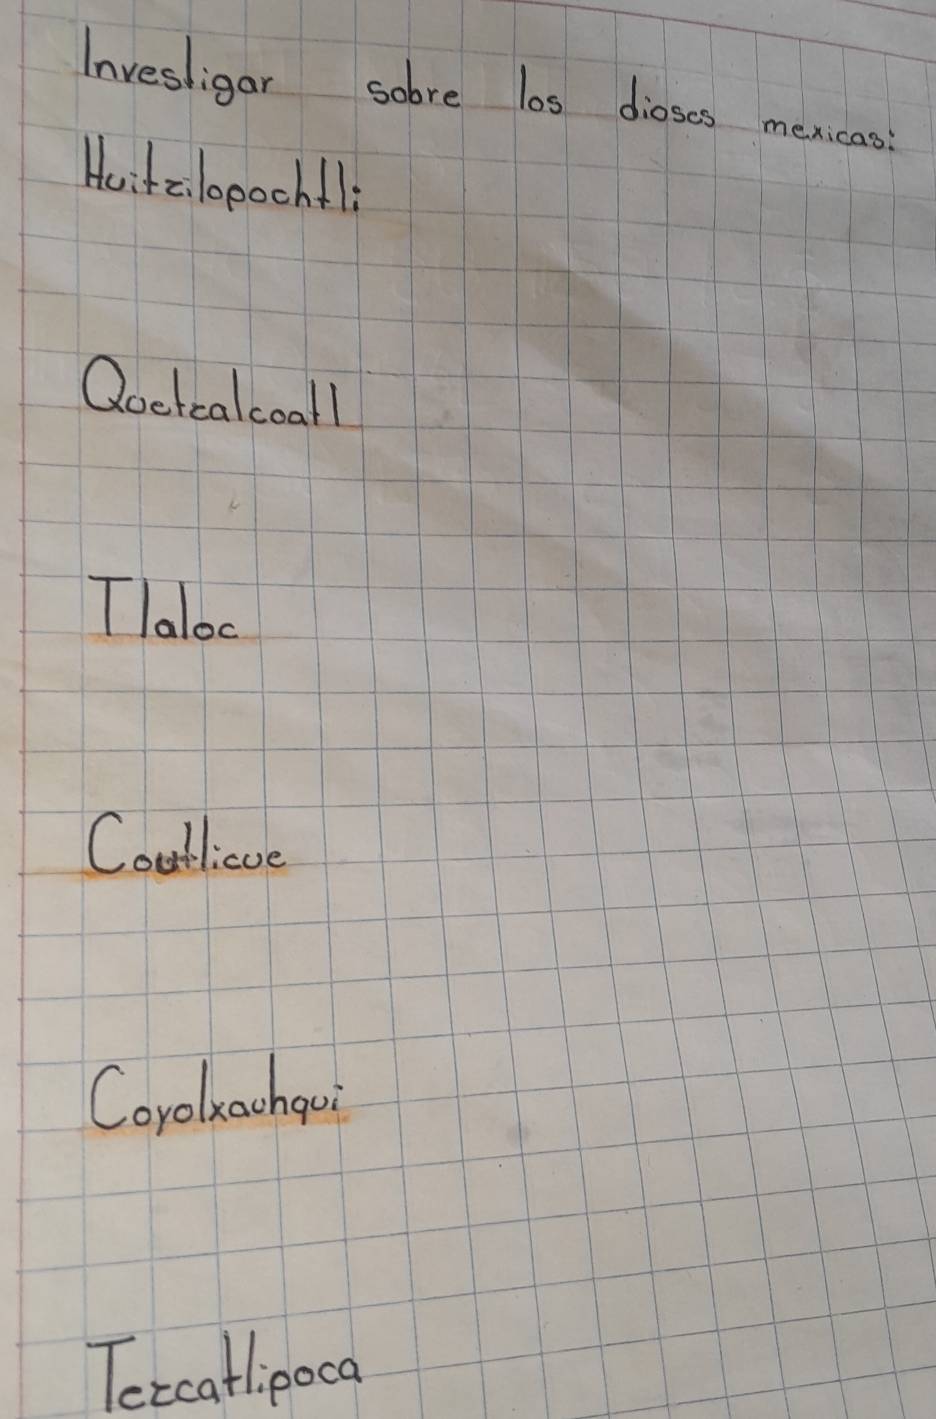 Investigar sobre los dioses mexicas:
Huitzilopochtli
Quetzalcoatl
Tlaloc
Coatlicue
Coyolxauhqui
Tezcatlipoca